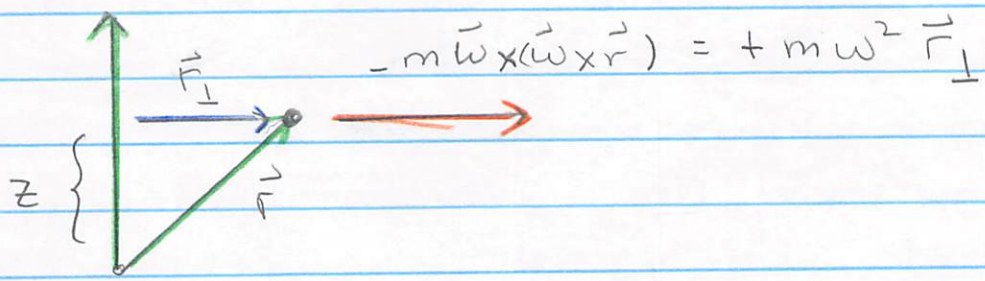 -m𝜔⃗×(𝜔⃗×r⃗) = +mω² r⃗⊥
r⃗⊥
z
r⃗